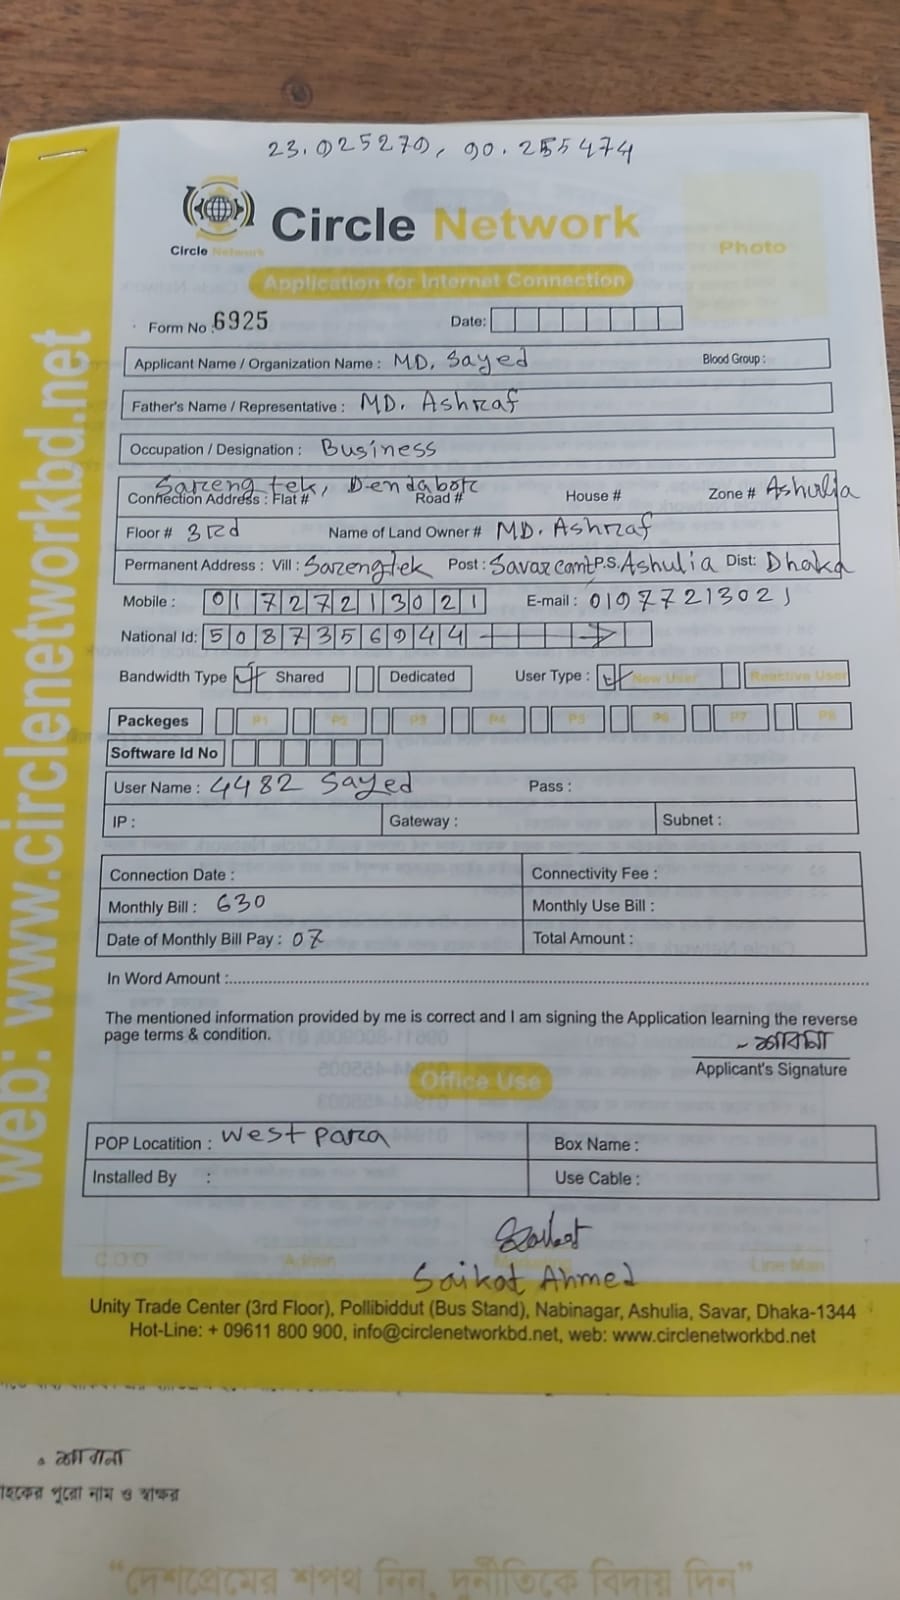 23.925270, 90.255474
Circle Network
Circle Network
Photo
Application for Internet Connection
Form No : 6925 Date:
Applicant Name / Organization Name : MD. Sayed Blood Group :
Father's Name / Representative : MD. Ashraf
Occupation / Designation : Business
Sareng tek, Dendabor
Connection Address : Flat # Road # House # Zone # Ashulia
Floor # 3rd Name of Land Owner # MD. Ashraf
Permanent Address : Vill : Sarengtek Post : Savar cant P.S. Ashulia Dist: Dhaka
Mobile : 01727213021 E-mail : 01977213021
National Id: 5087356944
Bandwidth Type Shared Dedicated User Type : New User Reactive User
Packeges P1 P2 P3 P4 P5 P6 P7 P8
Software Id No
User Name : 4482 Sayed Pass :
IP : Gateway : Subnet :
Connection Date : Connectivity Fee :
Monthly Bill : 630 Monthly Use Bill :
Date of Monthly Bill Pay : 07 Total Amount :
In Word Amount :
The mentioned information provided by me is correct and I am signing the Application learning the reverse
page terms & condition.
Applicant's Signature
Office Use
POP Locatition : West para Box Name :
Installed By : Use Cable :
C.O.O Admin Marketing Line Man
Saikat Ahmed
Unity Trade Center (3rd Floor), Pollibiddut (Bus Stand), Nabinagar, Ashulia, Savar, Dhaka-1344
Hot-Line: + 09611 800 900, info@circlenetworkbd.net, web: www.circlenetworkbd.net
web: www.circlenetworkbd.net
পুরো নাম ও স্বাক্ষর
“দেশপ্রেমের শপথ নিন, দুর্নীতিকে বিদায় দিন”